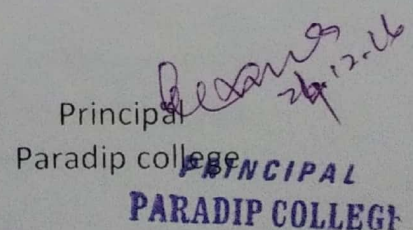 26.12.16
Principal
Paradip college
PRINCIPAL
PARADIP COLLEGE